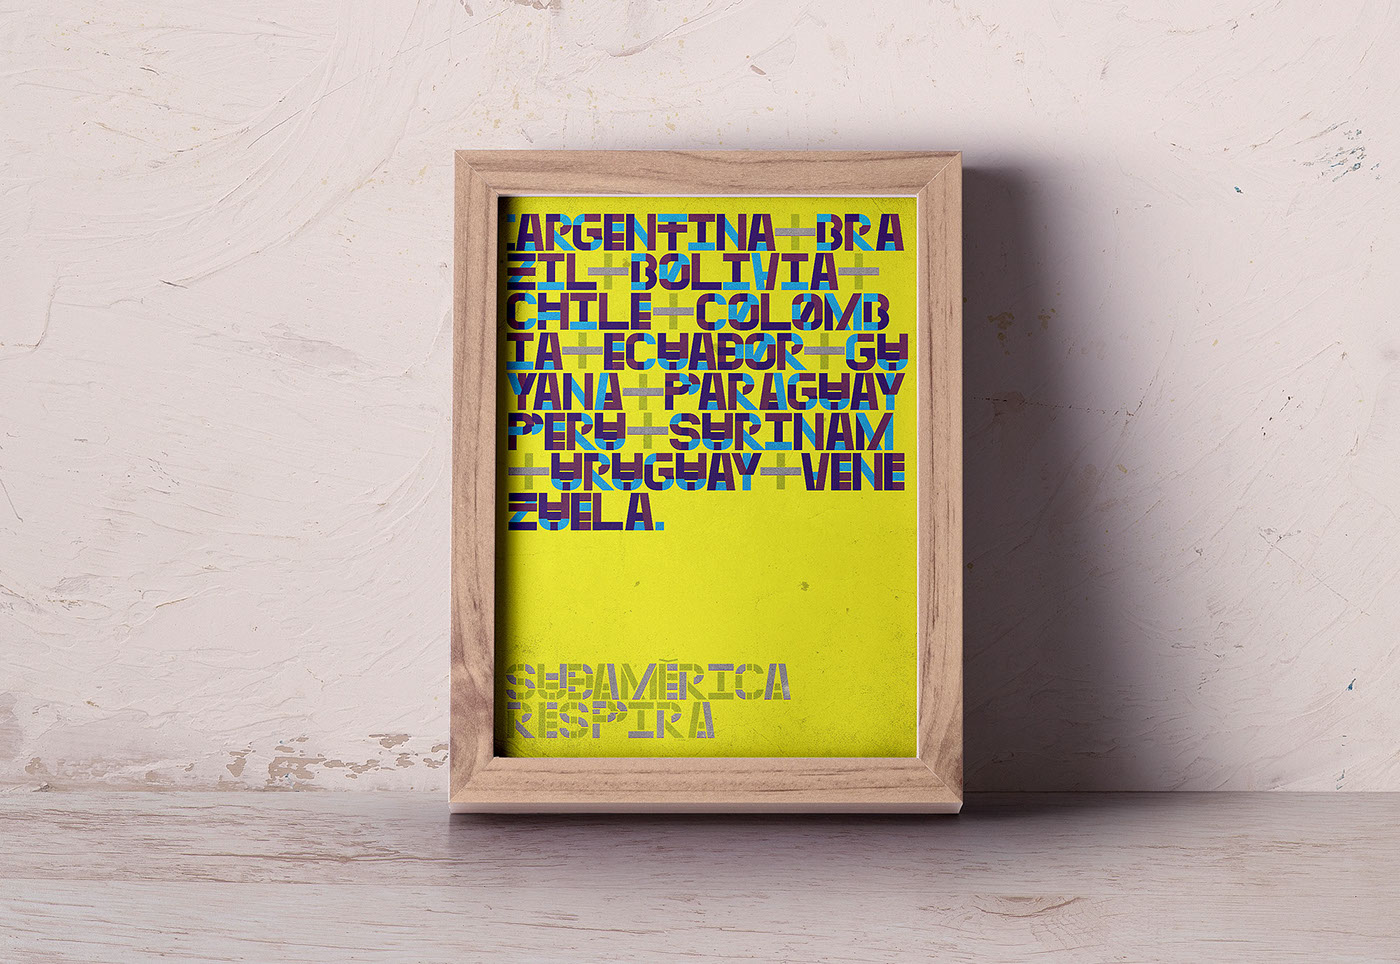 ARGENTINA+BRA
ZIL+BOLIVIA+
CHILE+COLOMB
IA+ECUADOR+GU
YANA+PARAGUAY
PERU+SURINAM
+URUGUAY+VENE
ZUELA.
SUDAMÉRICA
RESPIRA